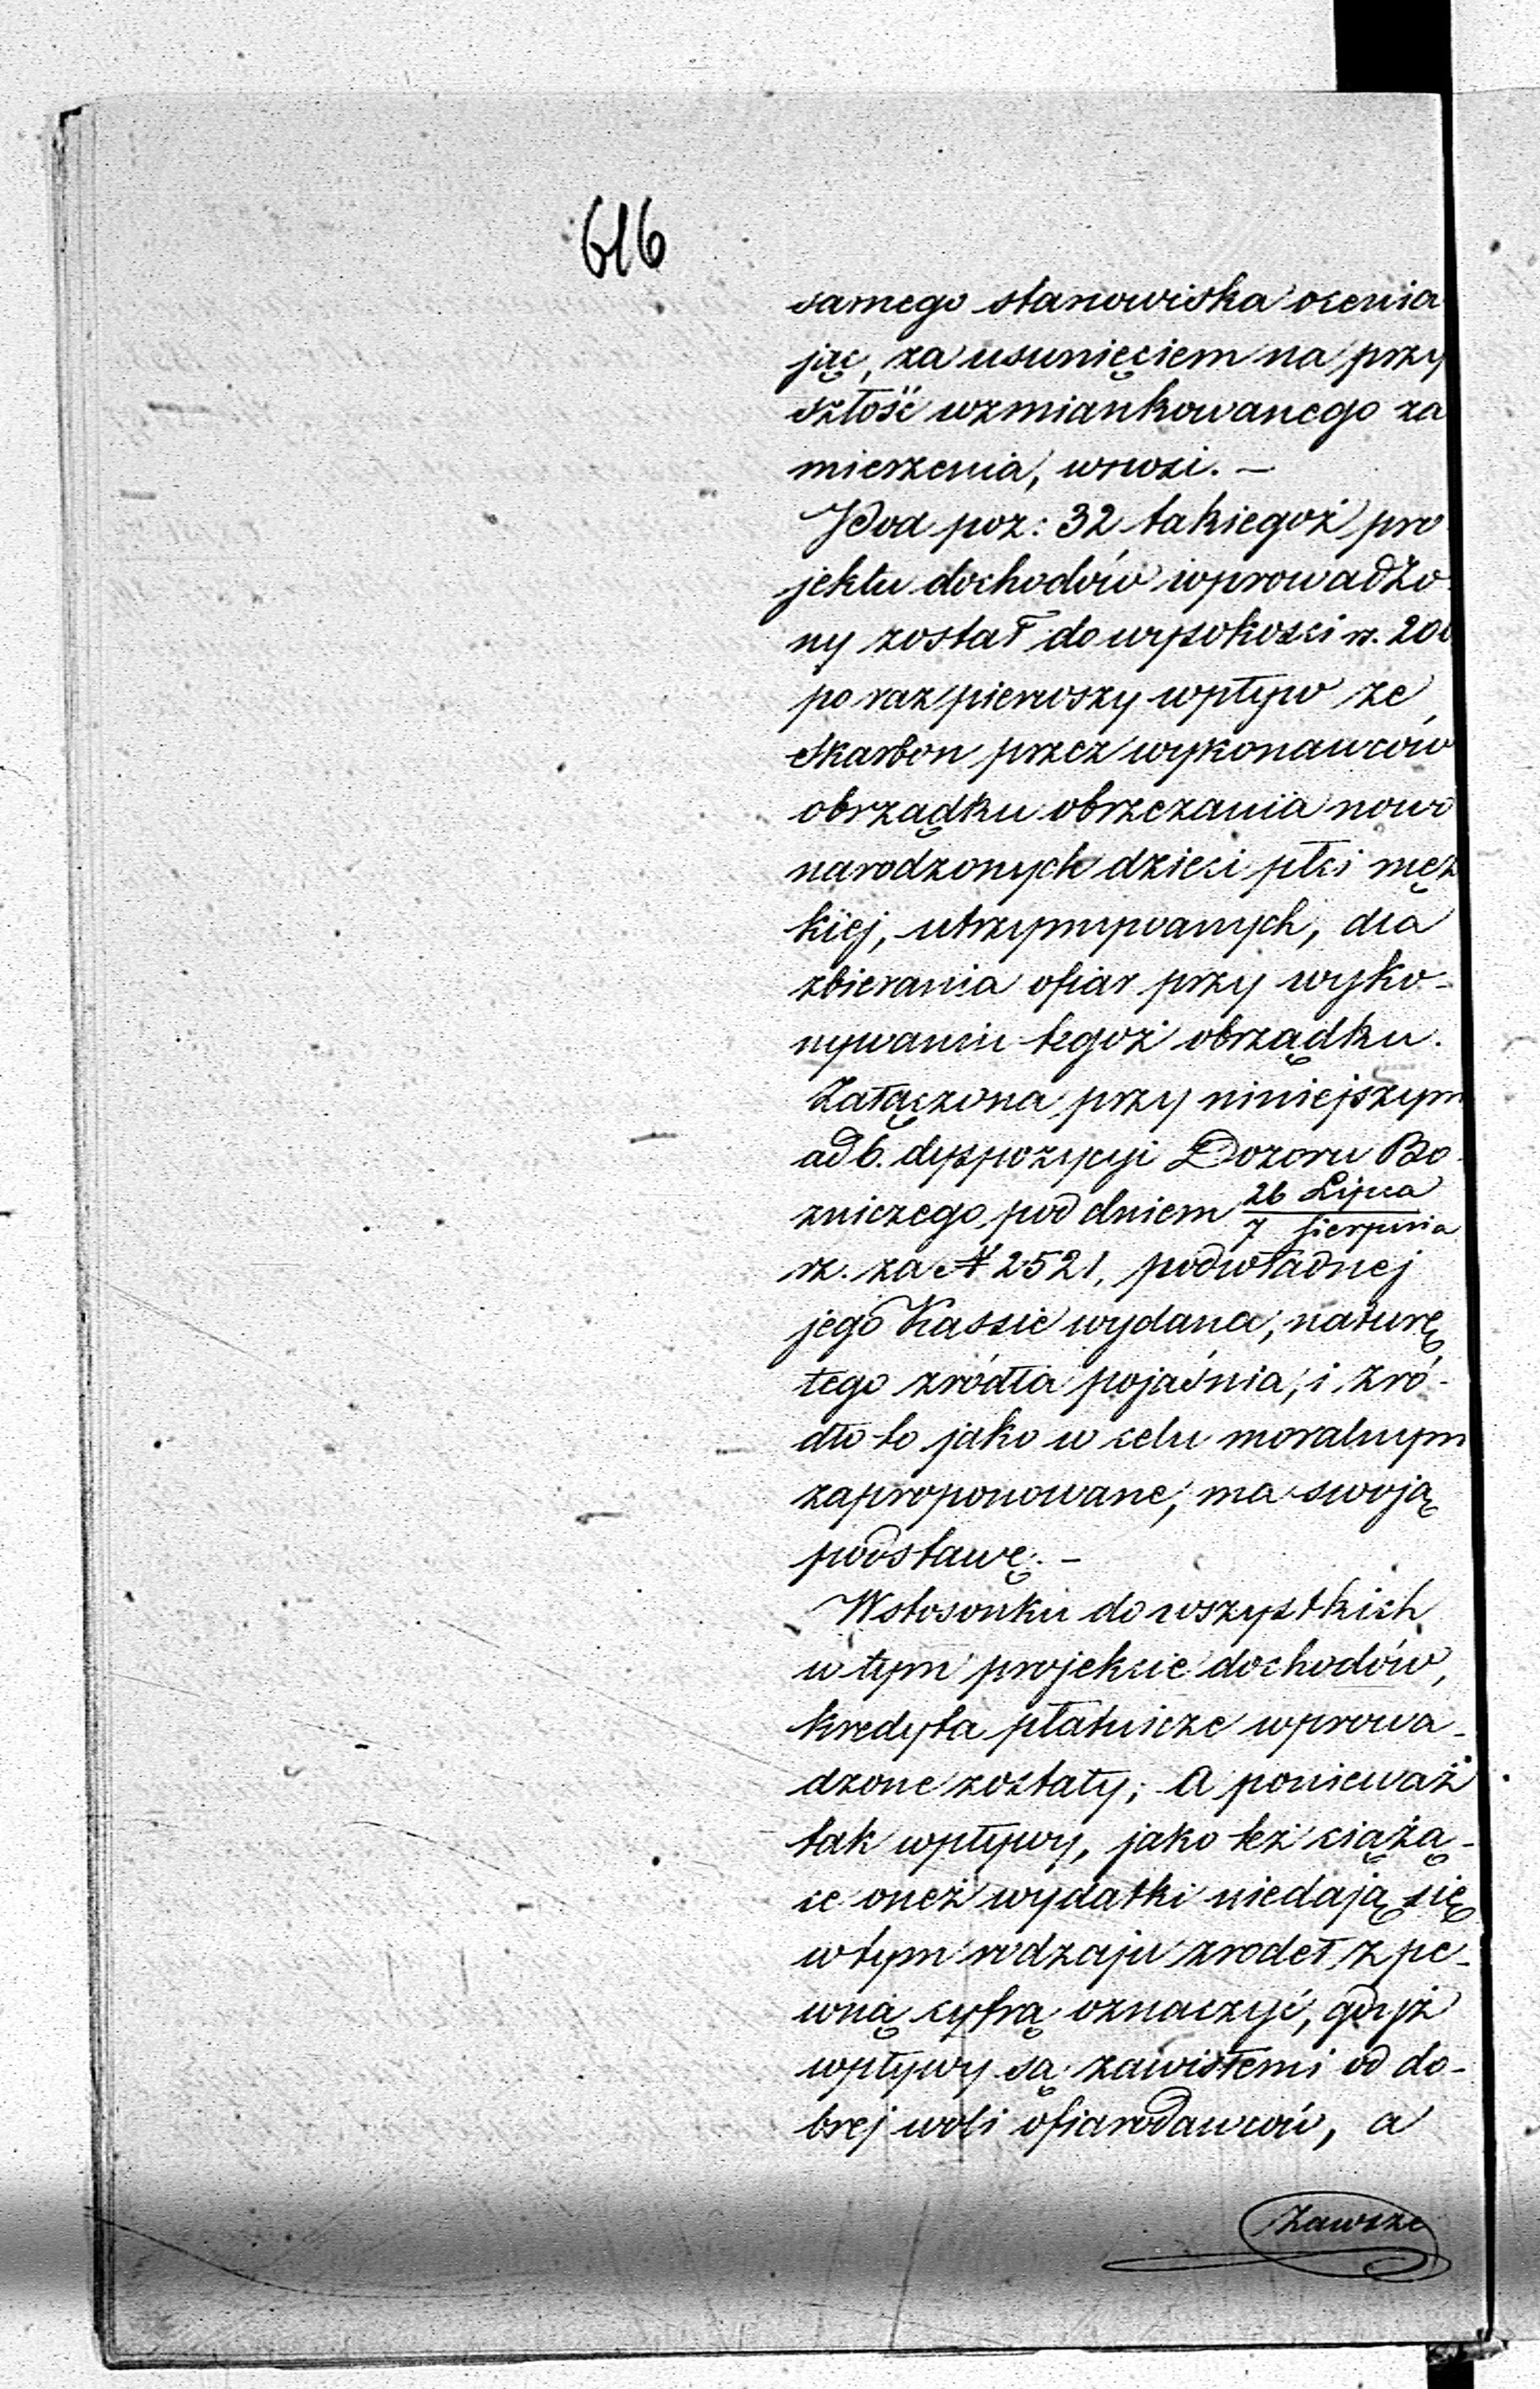 616
samego stanowiska ocenia
jąc, za usunięciem na przy
szłość wzmiankowanego za
mierzenia, wnosi. —
Pod poz: 32 takiegoż pro
jektu dochodów wprowadzo
ny został do wysokości rs. 200
po raz pierwszy wpływ ze
skarbon przez wykonawców
obrządku obrzezania nowo
narodzonych dzieci płci męz
kiej, utrzymywanych, dla
zbierania ofiar przy wyko-
nywaniu tegoż obrządku.
Załączona przy niniejszym
ad 6. dyspozycyi Dozoru Bo
zniczego pod dniem 26 Lipca / 7 Sierpnia
rz. za № 2521, podwładnej
jego Kassie wydana, naturę
tego zródła pojaśnia, i zró-
dło to jako w celu moralnym
zaproponowane, ma swoją
podstawę. —
W stosonku do wszystkich
w tym projekcie dochodów,
kredyta płatnicze wprowa-
dzone zostały; a ponieważ
tak wpływy, jako też ciążą-
ce oneż wydatki niedają się
w tym rodzaju zrodeł z pe-
wną cyfrą oznaczyć, gdyż
wpływy są zawisłemi od do-
brej woli ofiarodawców, a
zawsze